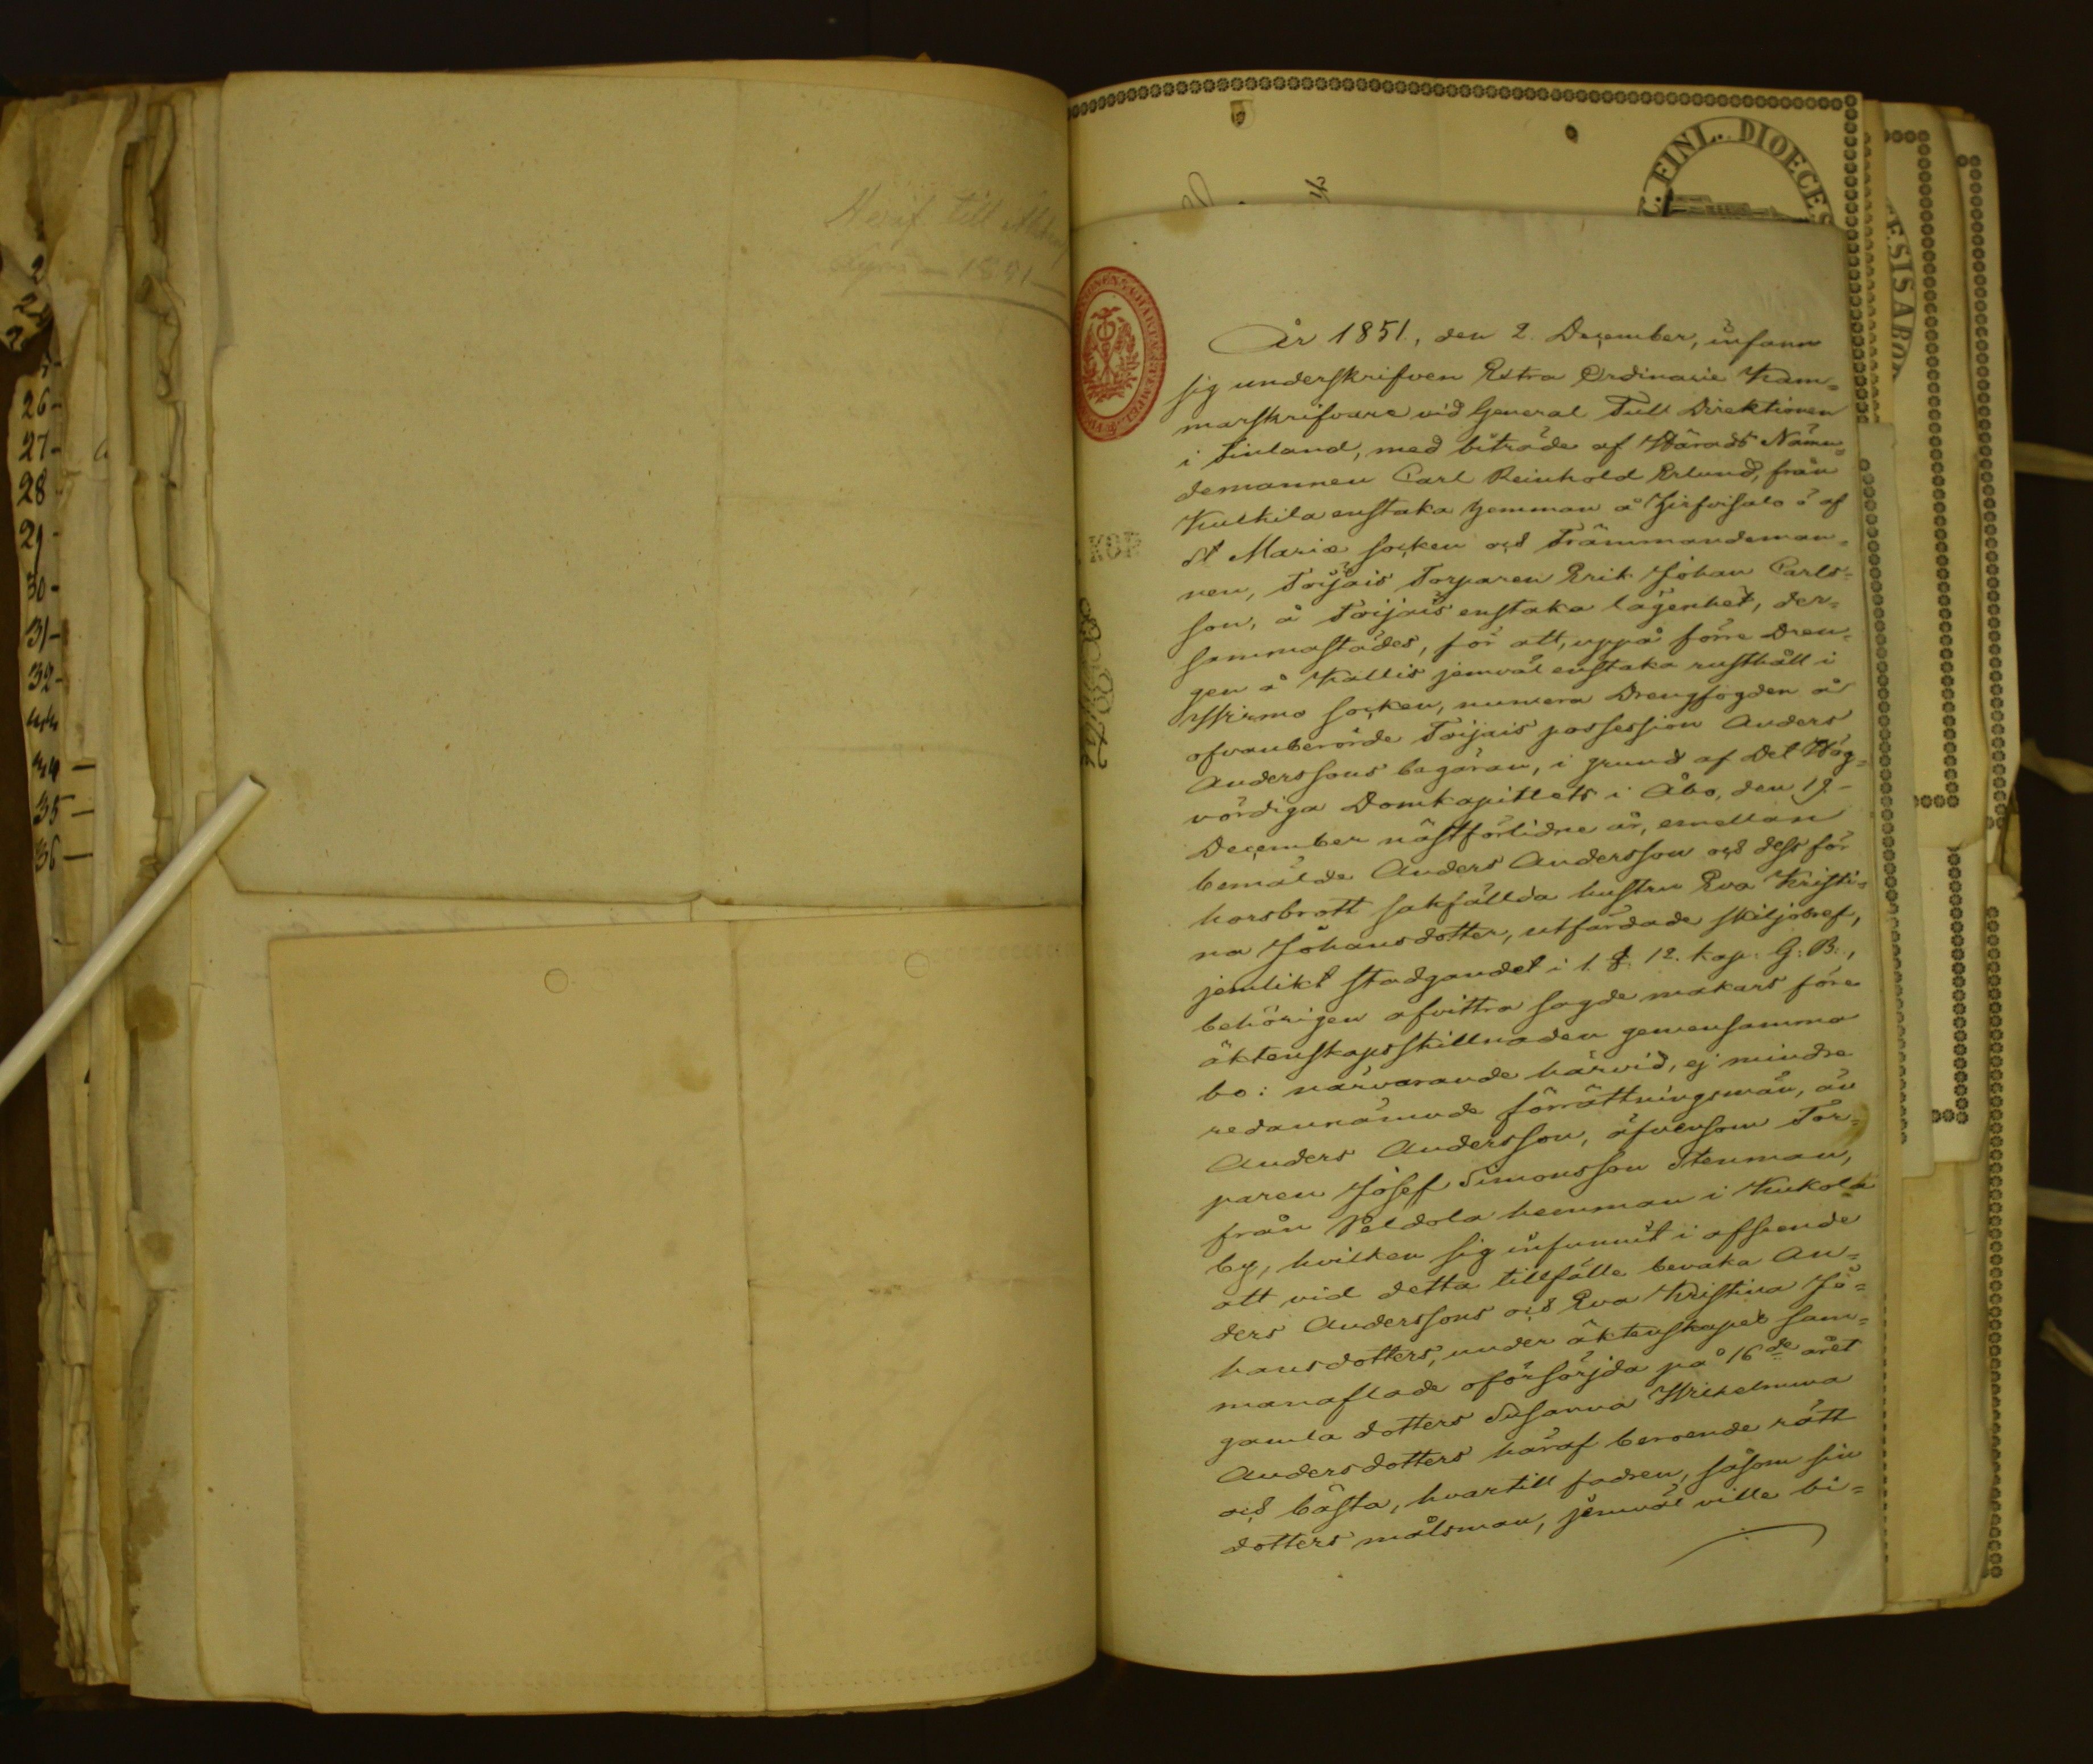 2
22
2
26-
27-
28
29-
30-
31-
32-
34-
35-
36-
till
1891
FINL. DIOECES
ESIS ABO
KOP
År 1851., den 2. December, infann
sig underskrifven Extra Ordinarie Kam=
marskrifvare vid General Tull Direktionen
i Finland, med biträde af Härads Näm=
demannen Carl Reinhold Erlund, från
Kulkila enstaka hemman å Hirfvisalo ö af
St Mariæ socken och Främmandeman=
nen, Toijais Torparen Erik Johan Carls=
son, å Toijais enstaka lägenhet, der=
sammastädes, för att, uppå förre Dren=
gen å Kallis jemväl enstaka rusthåll i
Virmo socken, numera Drengfogden å
ofvanberörde Toijais possession Anders
Anderssons begäran, i grund af Det Hög=
vördiga Domkapitlets i Åbo, den 19
December nästförlidne år, emellan
bemälde Anders Andersson och dess för
horsbrott sakfällda hustru Eva Kristi=
na Johansdotter, utfärdade skiljobref,
jemlikt stadgandet i 1. §. 12. kap. G: B:,
behörigen afvittra sagde makars före
äktenskapsskillnaden gemensamma
bo: närvarande härvid, ej mindre
redannämnde förrättningsmän, än
Anders Andersson, äfvensom Tor=
paren Josef Simonsson Stenman,
från Peldola hemman i Kukola
by, hvilken sig infunnit i afseende
att vid detta tillfälle bevaka An=
ders Anderssons och Eva Kristina Jo=
hansdotters, under äktenskapet sam=
manaflade oförsörjda på 16de året
gamla dotters Susanna Wilhelmina
Andersdotters häraf beroende rätt
och bästa, hvartill fadren, såsom sin
dotters målsman, jemväl ville bi=